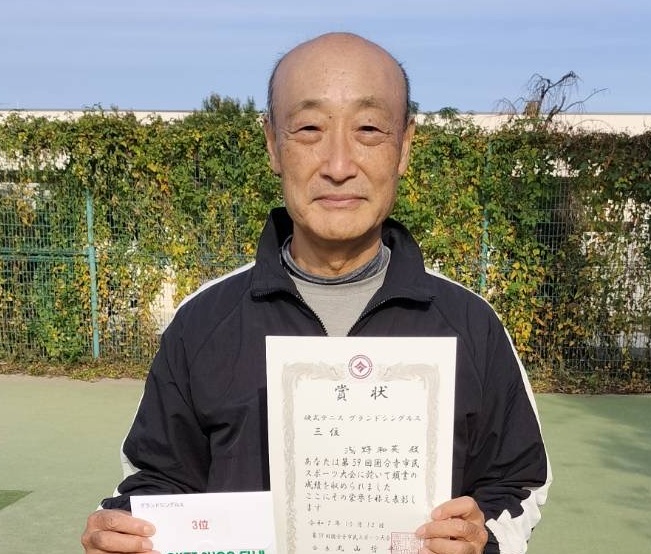 賞状
硬式テニス グランドシングルス
三位
浅野和英 殿
あなたは第59回国分寺市民
スポーツ大会に於いて頭書の
成績を収められました
ここにその栄誉を称え表彰し
ます
令和7年10月12日
第59回国分寺市民スポーツ大会
会長 丸山哲
グランドシングルス
3位